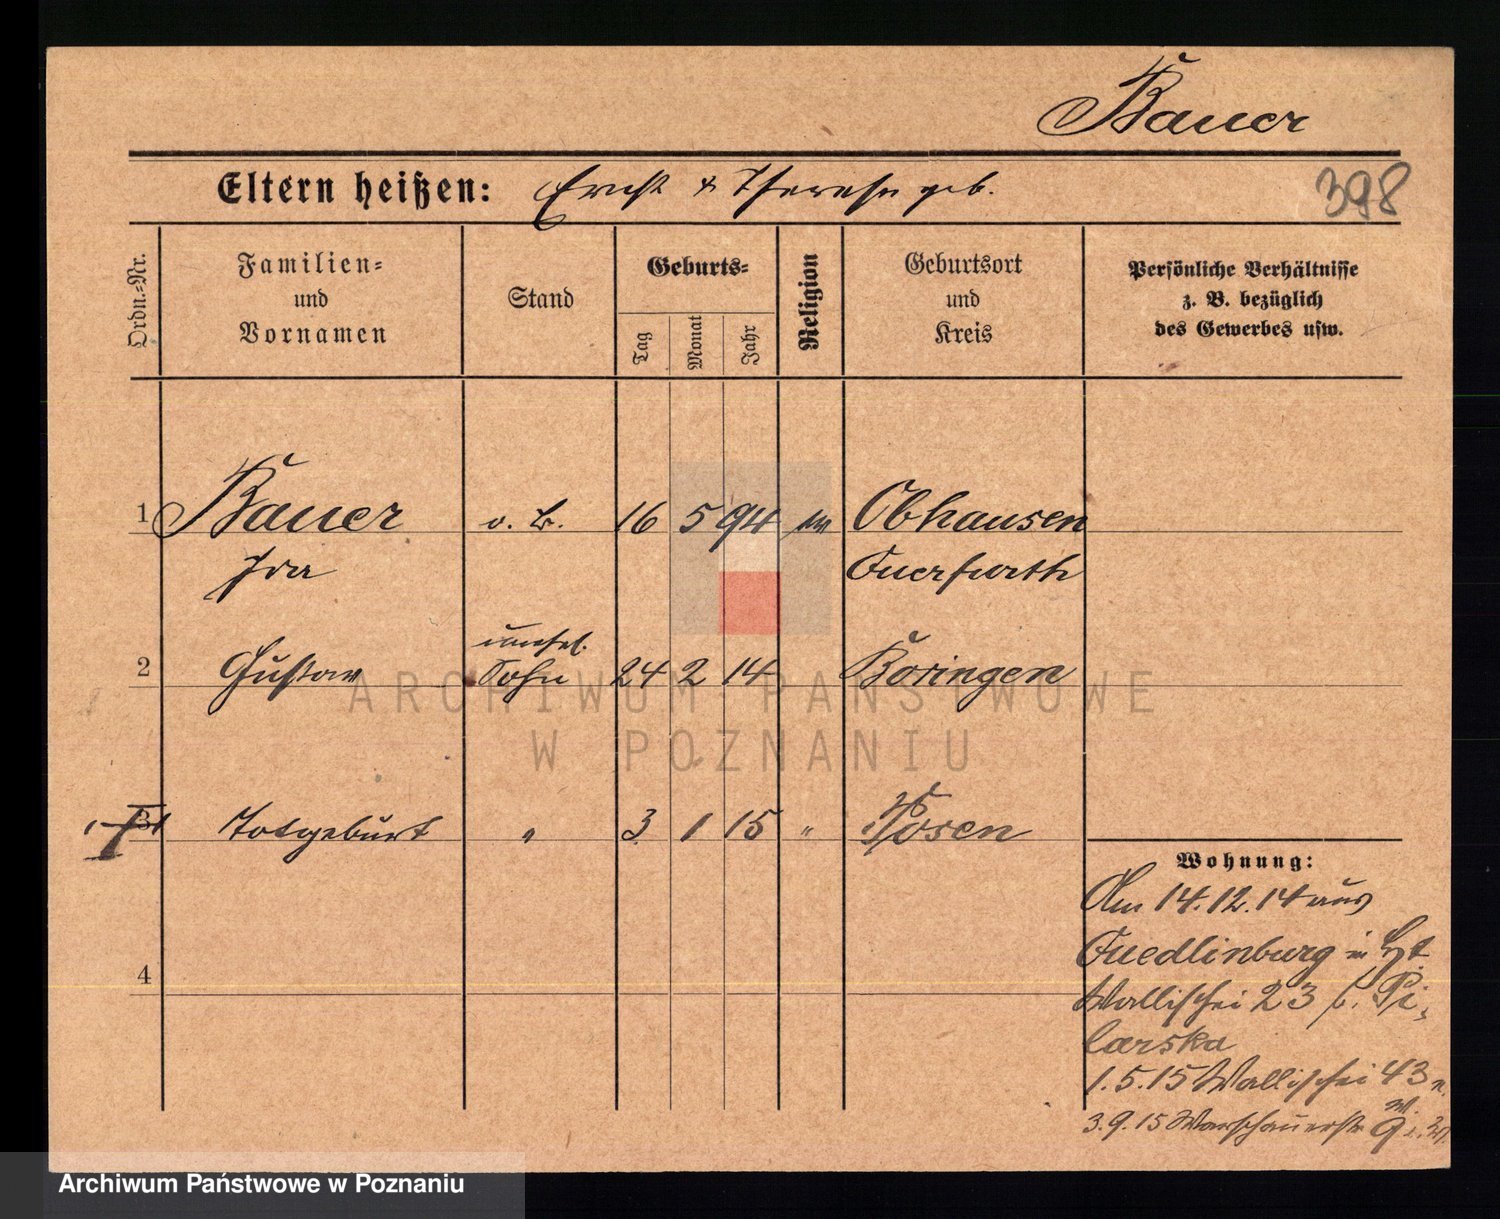 Bauer
Eltern heißen: Ernst & Therese geb.
398
Ordn.-Nr.
Familien-
und
Vornamen
Stand
Geburts-
Tag
Monat
Jahr
Religion
Geburtsort
und
Kreis
Persönliche Verhältnisse
z. B. bezüglich
des Gewerbes usw.
1 Bauer o. B. 16 5 94 Obhausen
Ida Querfurth
unehel.
2 Gustav Sohn 24 2 14 Böringen
3 Totgeburt " 3 1 15 " Posen
4
Wohnung:
Am 14.12.14 aus
Quedlinburg in
Wallischei 23 b. Pi-
larska
1.5.15 Wallischei 43
3.9.15 Warschauerstr 9
ARCHIWUM PAŃSTWOWE
W POZNANIU
Archiwum Państwowe w Poznaniu